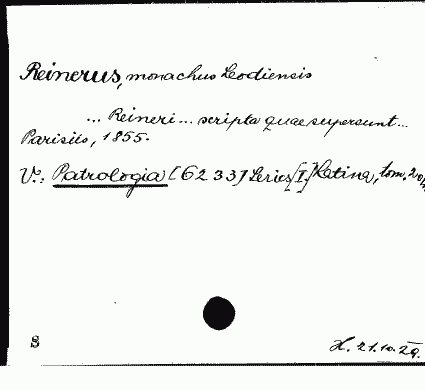 Reinerus, monachus Leodiensis
... Reineri ... scripta quae supersunt ...
Parisiis, 1855.
V.: Patrologia [6233] Series [I.] Latina, tom. 
S
H. 21.10.29.